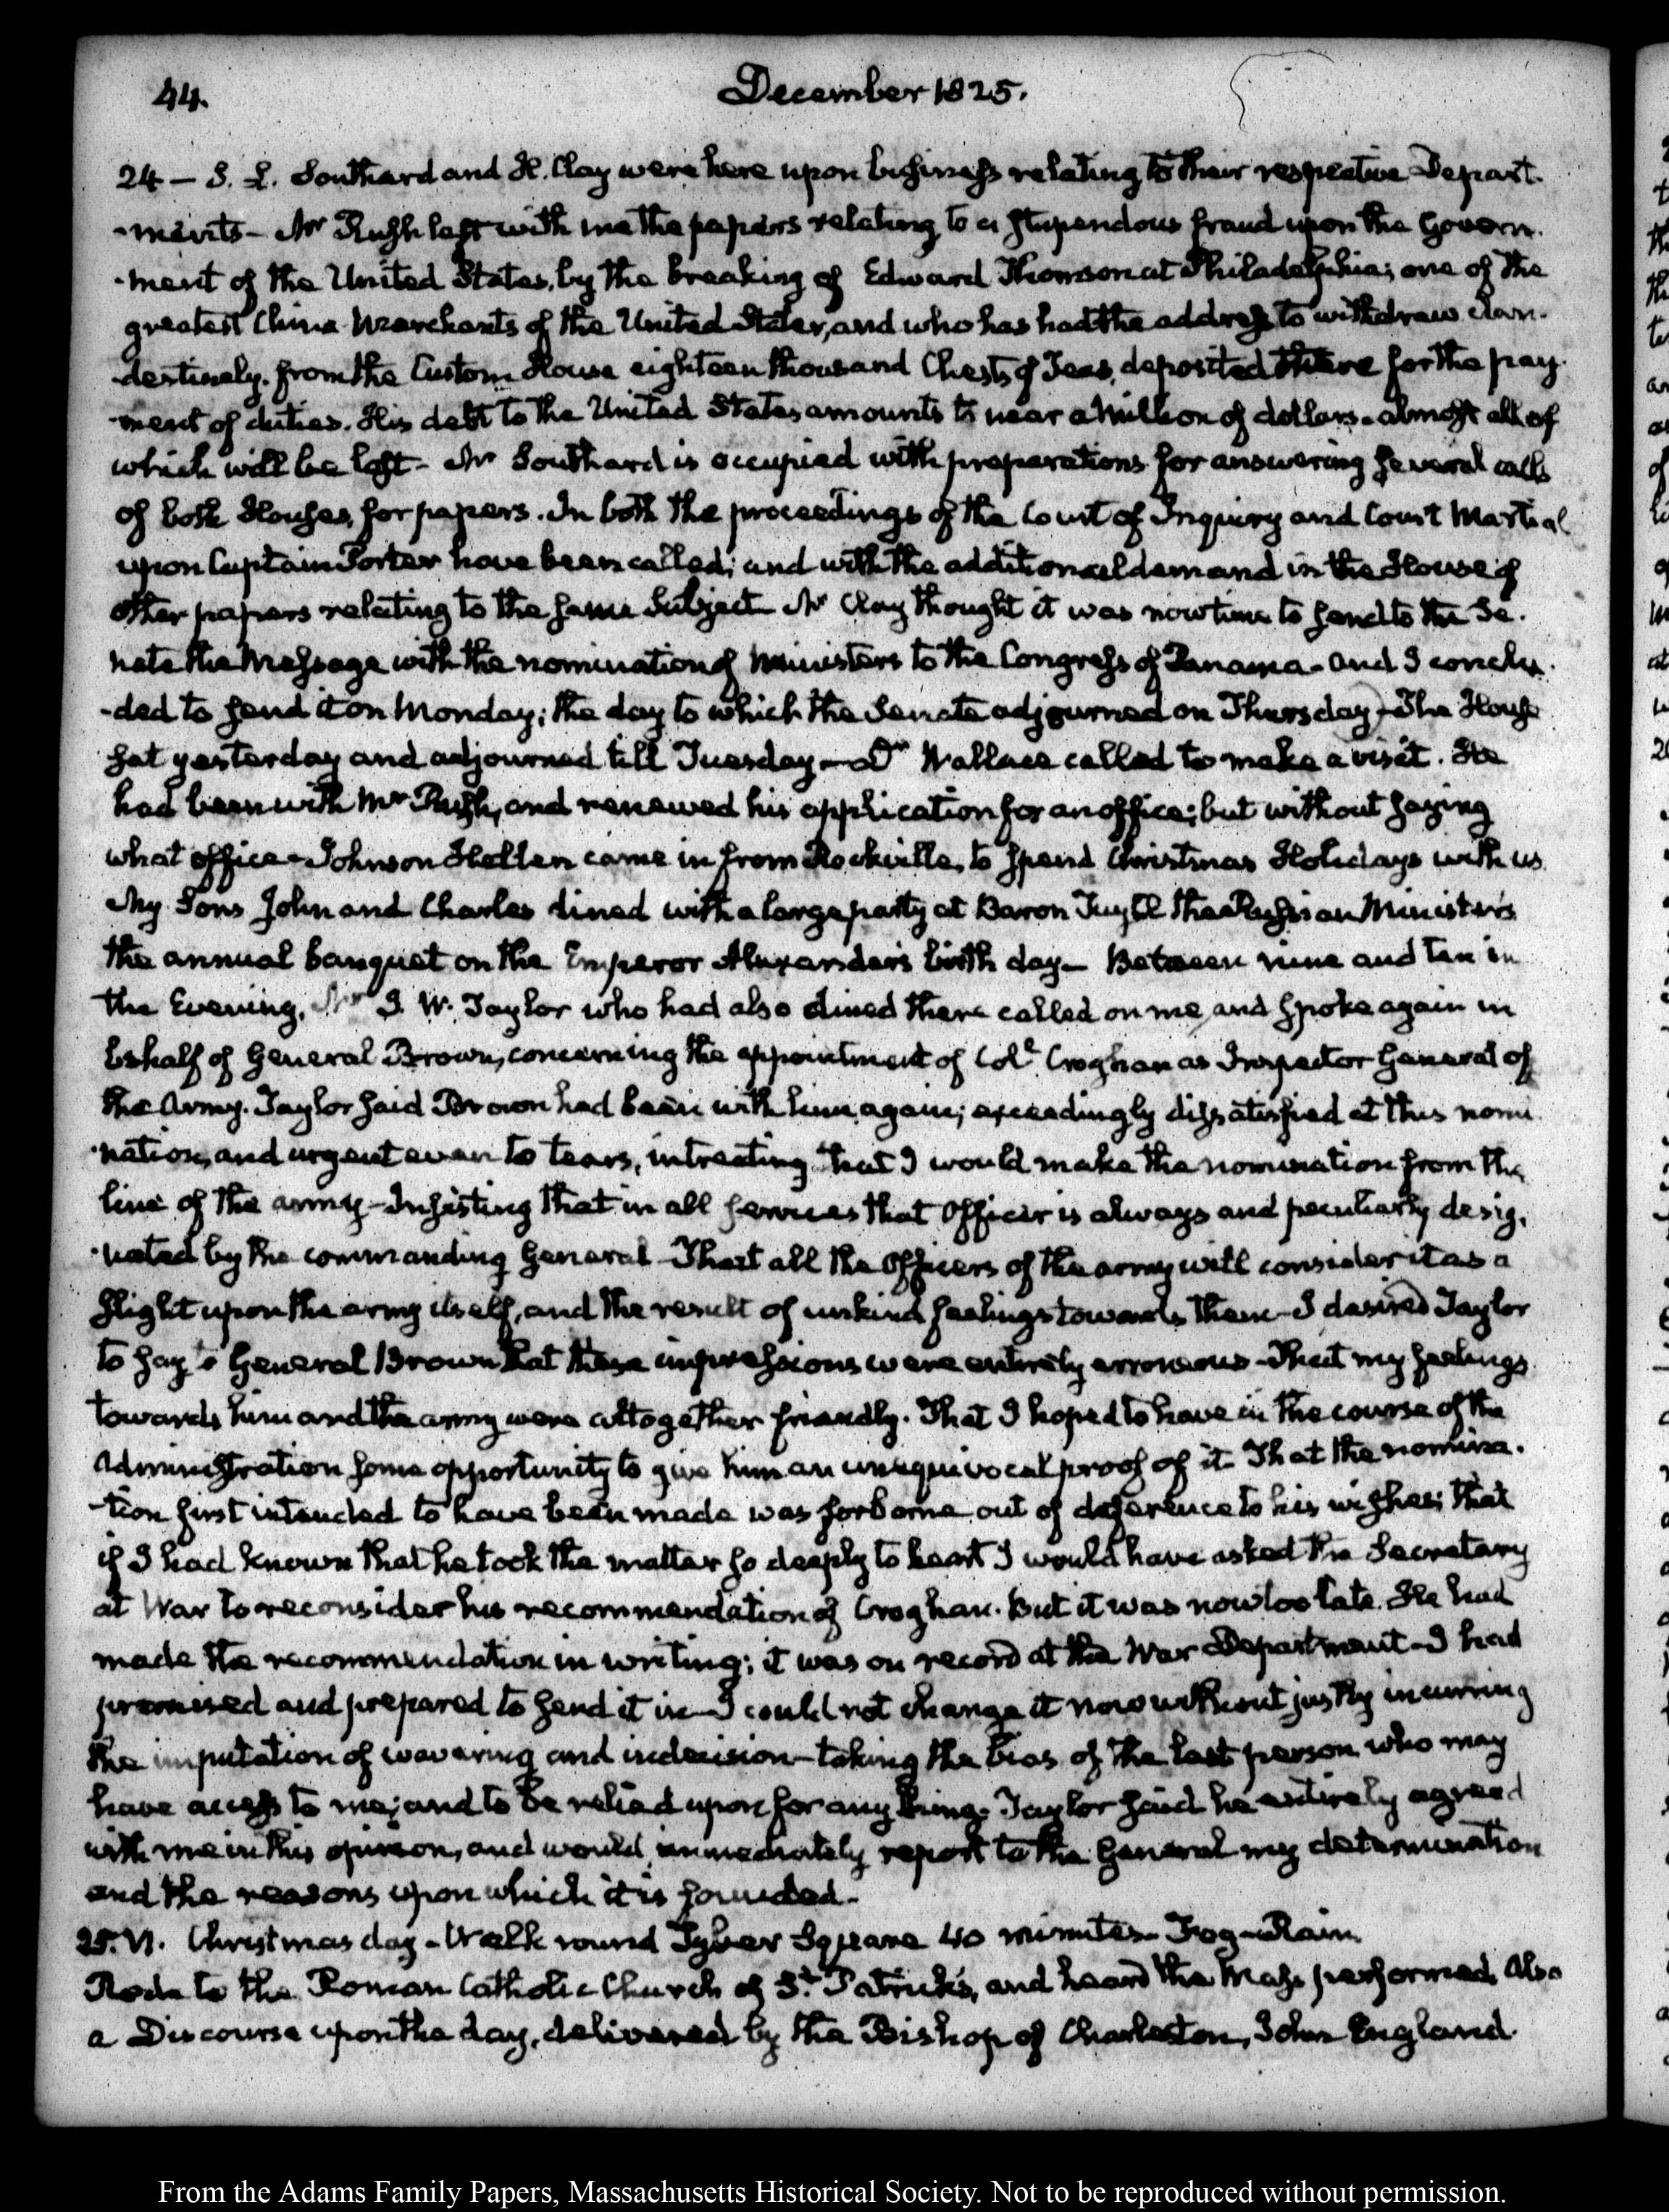 44.
December 1825.
24 — S. L. Southard and H. Clay were here upon business relating to their respective Depart-
-ments — Mr Rush left with me the papers relating to a stupendous fraud upon the Govern-
-ment of the United States, by the breaking of Edward Thomson at Philadelphia; one of the
greatest China Merchants of the United States, and who has had the address to withdraw clan-
-destinely from the Custom House eighteen thousand Chests of Teas, deposited there for the pay-
-ment of duties. His debt to the United States amounts to near a Million of dollars - almost all of
which will be lost - Mr Southard is occupied with preparations for answering several calls
of both Houses, for papers. In both the proceedings of the Court of Inquiry and Court Martial
upon Captain Porter have been called; and with the additional demand in the House of
other papers relating to the same subject - Mr Clay thought it was now time to send to the Se-
nate the Message with the nomination of Ministers to the Congress of Panama - and I conclu-
-ded to send it on Monday; the day to which the Senate adjourned on Thursday - The House
sat yesterday and adjourned till Tuesday — Dr Wallace called to make a visit. He
had been with Mr Rush, and renewed his application for an office; but without saying
what office - Johnson Hellen came in from Rockville, to spend Christmas Holidays with us
My Sons John and Charles dined with a large party at Baron Tuyll the Russian Minister's
the annual banquet on the Emperor Alexander's birth day - Between nine and ten in
the Evening, Mr J. W. Taylor who had also dined there called on me, and spoke again in
behalf of General Brown, concerning the appointment of Coll. Croghan as Inspector General of
the Army. Taylor said Brown had been with him again; exceedingly dissatisfied at this nomi
-nation, and urgent even to tears, intreating that I would make the nomination from the
line of the army - Insisting that in all services that Officer is always and peculiarly desig-
-nated by the commanding General - That all the Officers of the army will consider it as a
slight upon the army itself, and the result of unkind feelings towards them - I desired Taylor
to say to General Brown that these impressions were entirely erroneous - That my feelings
towards him and the army were altogether friendly. That I hoped to have in the course of the
Administration some opportunity to give him an unequivocal proof of it. That the nomina-
-tion first intended to have been made was forborne out of deference to his wishes; that
if I had known that he took the matter so deeply to heart I would have asked the Secretary
at War to reconsider his recommendation of Croghan. But it was now too late. He had
made the recommendation in writing; it was on record at the War Department - I had
promised and prepared to send it in — I could not change it now without justly incurring
the imputation of wavering and indecision - taking the bias of the last person who may
have access to me; and to be relied upon for any thing. Taylor said he entirely agreed
with me in this opinion, and would immediately report to the General my determination
and the reasons upon which it is founded -
25. VI. Christmas day - Walk round Tyber Square 40 minutes - Fog - Rain.
Rode to the Roman Catholic Church of St. Patrick's, and heard the Mass performed. Also
a Discourse upon the day, delivered by the Bishop of Charleston, John England.
From the Adams Family Papers, Massachusetts Historical Society. Not to be reproduced without permission.